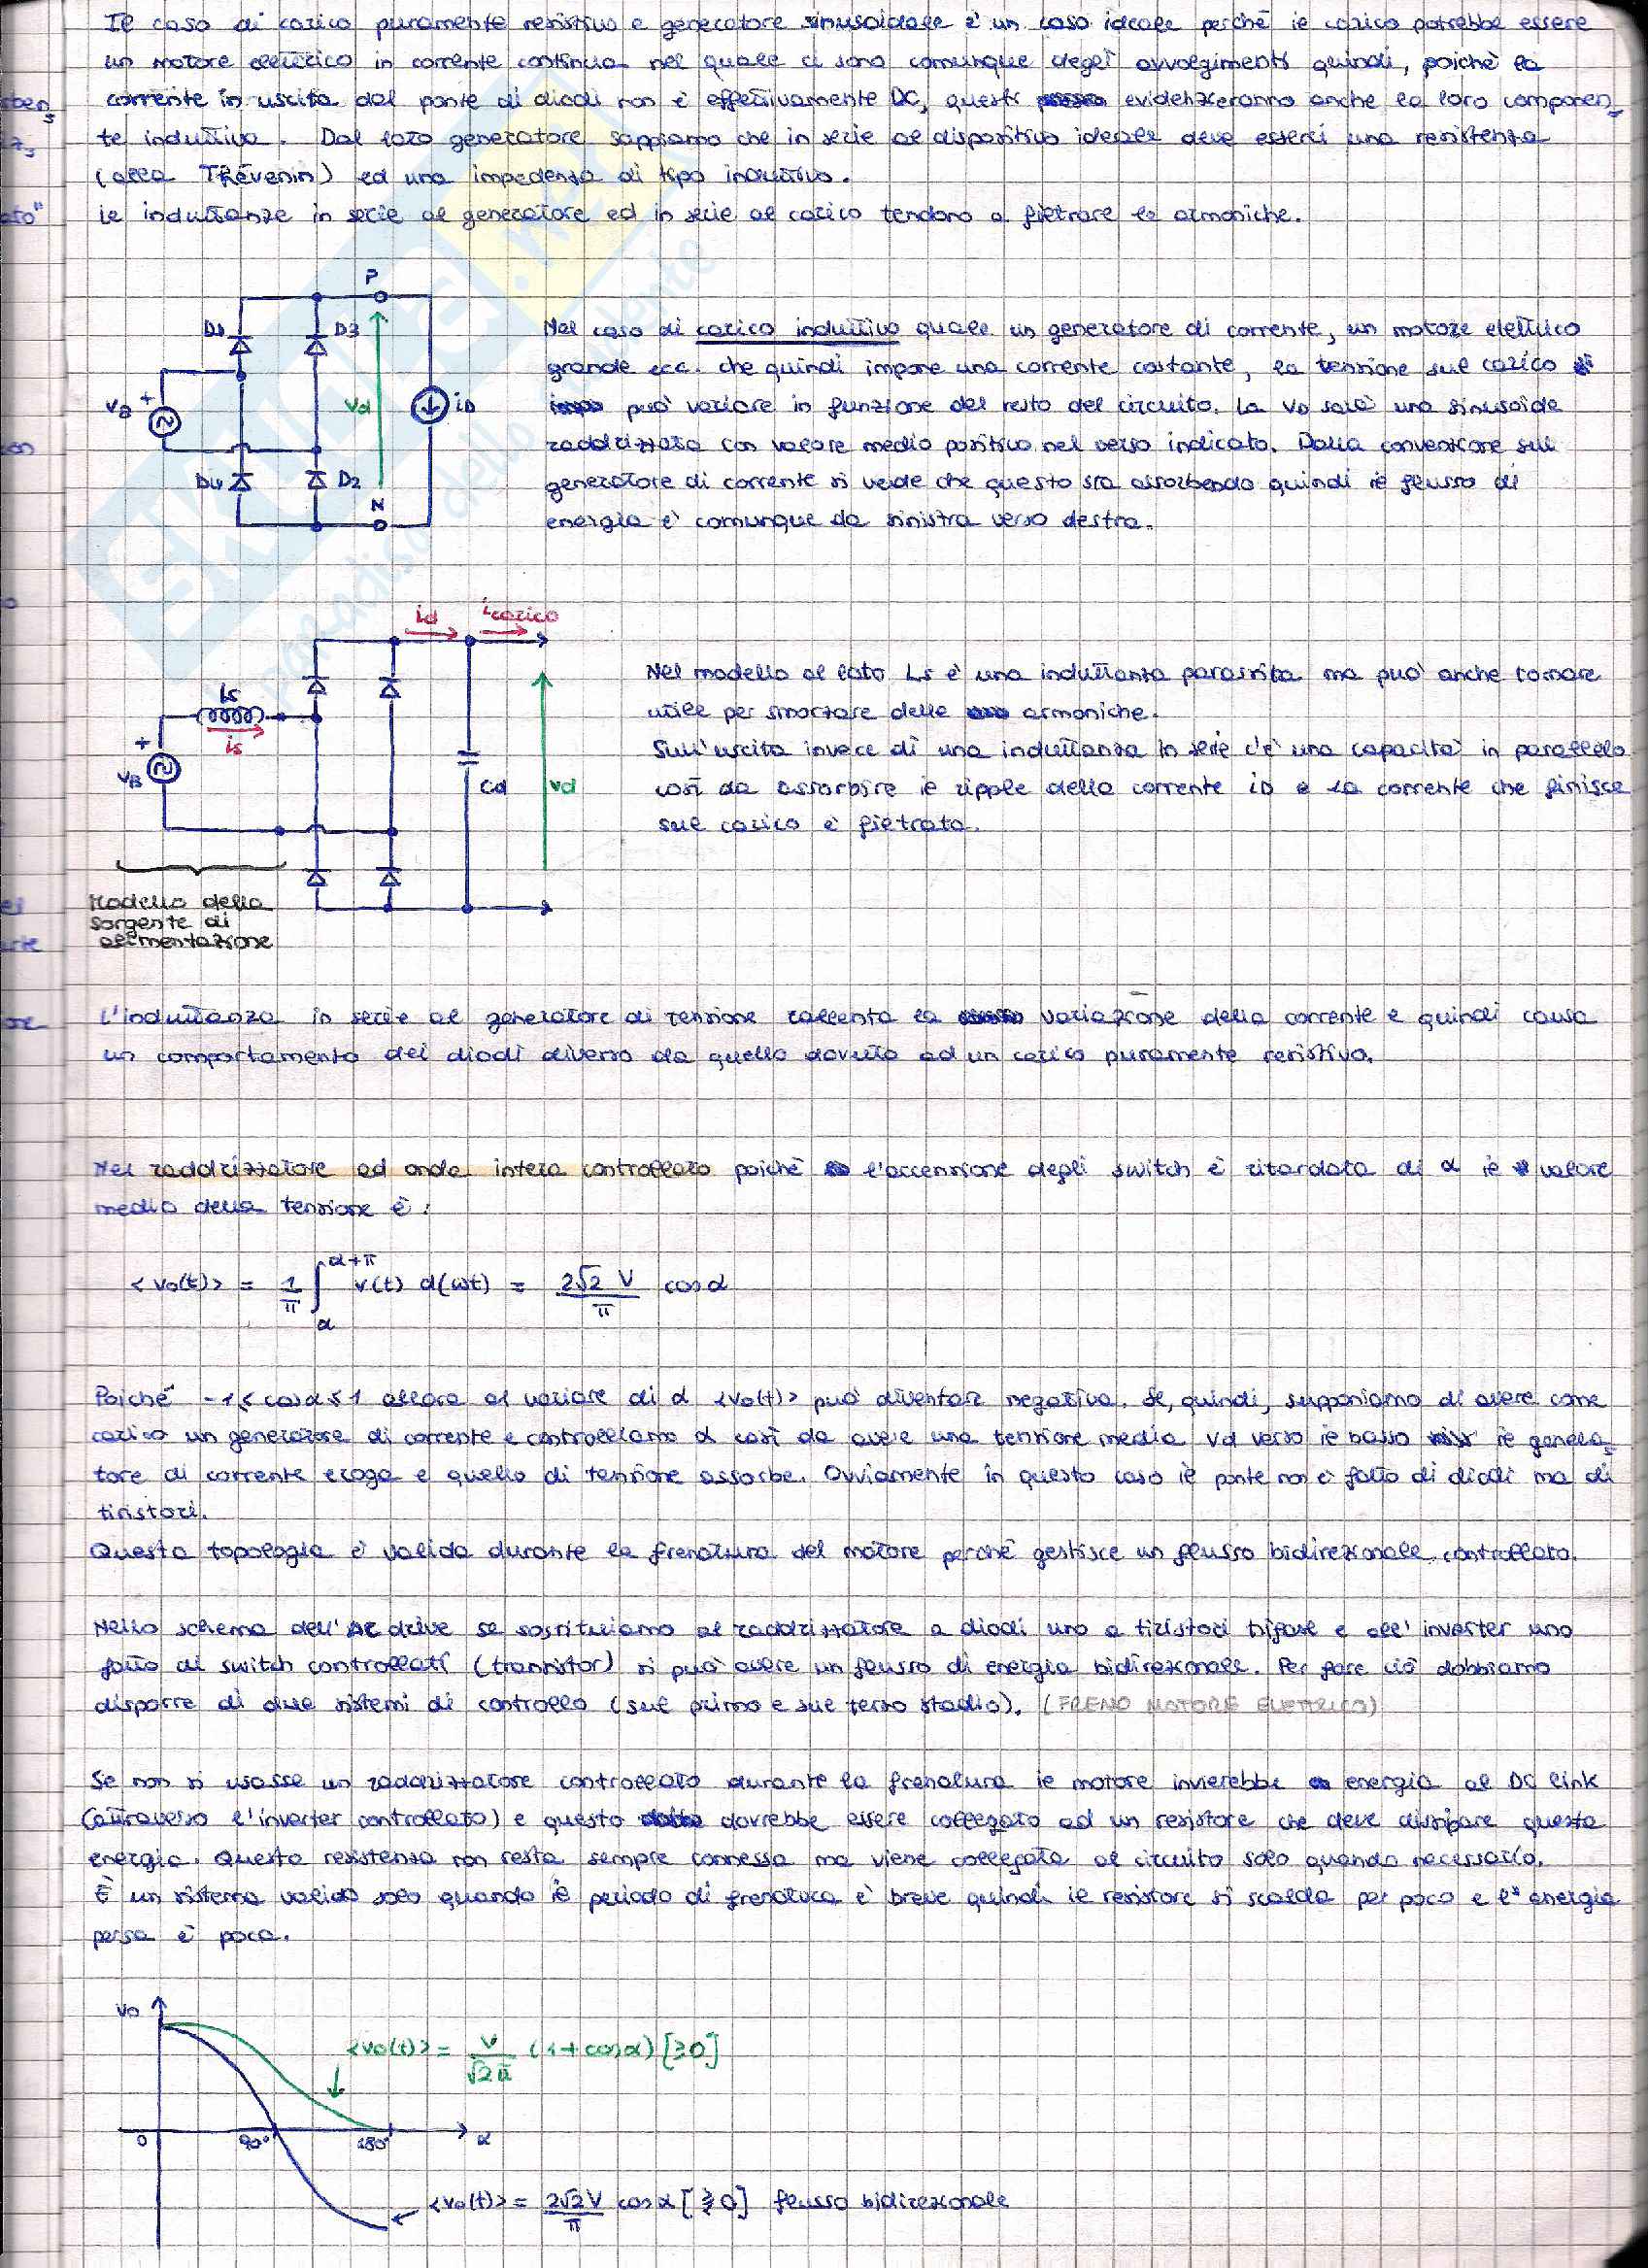 Il caso di carico puramente resistivo e generatore sinusoidale è un caso ideale perché il carico potrebbe essere
un motore elettrico in corrente continua nel quale ci sono comunque degli avvolgimenti quindi, poiché la
corrente in uscita dal ponte di diodi non è effettivamente DC, questi evidenzieranno anche la loro componen
te induttiva. Dal lato generatore sappiamo che in serie al dispositivo ideale deve esserci una resistenza
(alla Thévenin) ed una impedenza di tipo induttivo.
Le induttanze in serie al generatore ed in serie al carico tendono a filtrare le armoniche.
P
D1
D3
Nel caso di carico induttivo quale un generatore di corrente, un motore elettrico
grande ecc. che quindi impone una corrente costante, la tensione sul carico
vB + Vd iD può variare in funzione del resto del circuito. La VD sarà una sinusoide
raddrizzata con valore medio positivo nel verso indicato. Dalla convenzione sul
D4 D2 generatore di corrente si vede che questo sta assorbendo quindi il flusso di
N
energia è comunque da sinistra verso destra.
id icarico
Ls
is
+
vB
Cd
vd
Nel modello al lato Ls è una induttanza parassita ma può anche tornare
utile per smorzare delle armoniche.
Sull'uscita invece di una induttanza in serie c'è una capacità in parallelo
così da assorbire il ripple della corrente iD e la corrente che finisce
sul carico è filtrata.
Modello della
sorgente di
alimentazione
L'induttanza in serie al generatore di tensione rallenta la variazione della corrente e quindi causa
un comportamento dei diodi diverso da quello dovuto ad un carico puramente resistivo.
Nel raddrizzatore ad onda intera controllato poiché l'accensione degli switch è ritardata di α il valore
medio della tensione è:
<vo(t)> = 1/π ∫_α^{α+π} v(t) d(ωt) = 2√2 V/π cosα
Poiché -1≤cosα≤1 allora al variare di α <vo(t)> può diventare negativa. Se, quindi, supponiamo di avere come
carico un generatore di corrente e controlliamo α così da avere una tensione media Vd verso il basso il genera
tore di corrente eroga e quello di tensione assorbe. Ovviamente in questo caso il ponte non è fatto di diodi ma di
tiristori.
Questa topologia è valida durante la frenatura del motore perché gestisce un flusso bidirezionale controllato.
Nello schema dell'AC drive se sostituiamo al raddrizzatore a diodi uno a tiristori trifase e all'inverter uno
fatto di switch controllati (transistor) si può avere un flusso di energia bidirezionale. Per fare ciò dobbiamo
disporre di due sistemi di controllo (sul primo e sul terzo stadio). (FRENO MOTORE ELETTRICO)
Se non si usasse un raddrizzatore controllato durante la frenatura il motore invierebbe energia al DC link
(attraverso l'inverter controllato) e questo dovrebbe essere collegato ad un resistore che deve dissipare questa
energia. Questa resistenza non resta sempre connessa ma viene collegata al circuito solo quando necessario.
È un sistema valido solo quando il periodo di frenatura è breve quindi il resistore si scalda per poco e l'energia
persa è poca.
vo
<vo(t)> = V/√2π (1+cosα) [≥0]
0 90° 180° α
<vo(t)> = 2√2V/π cosα [≷0] flusso bidirezionale